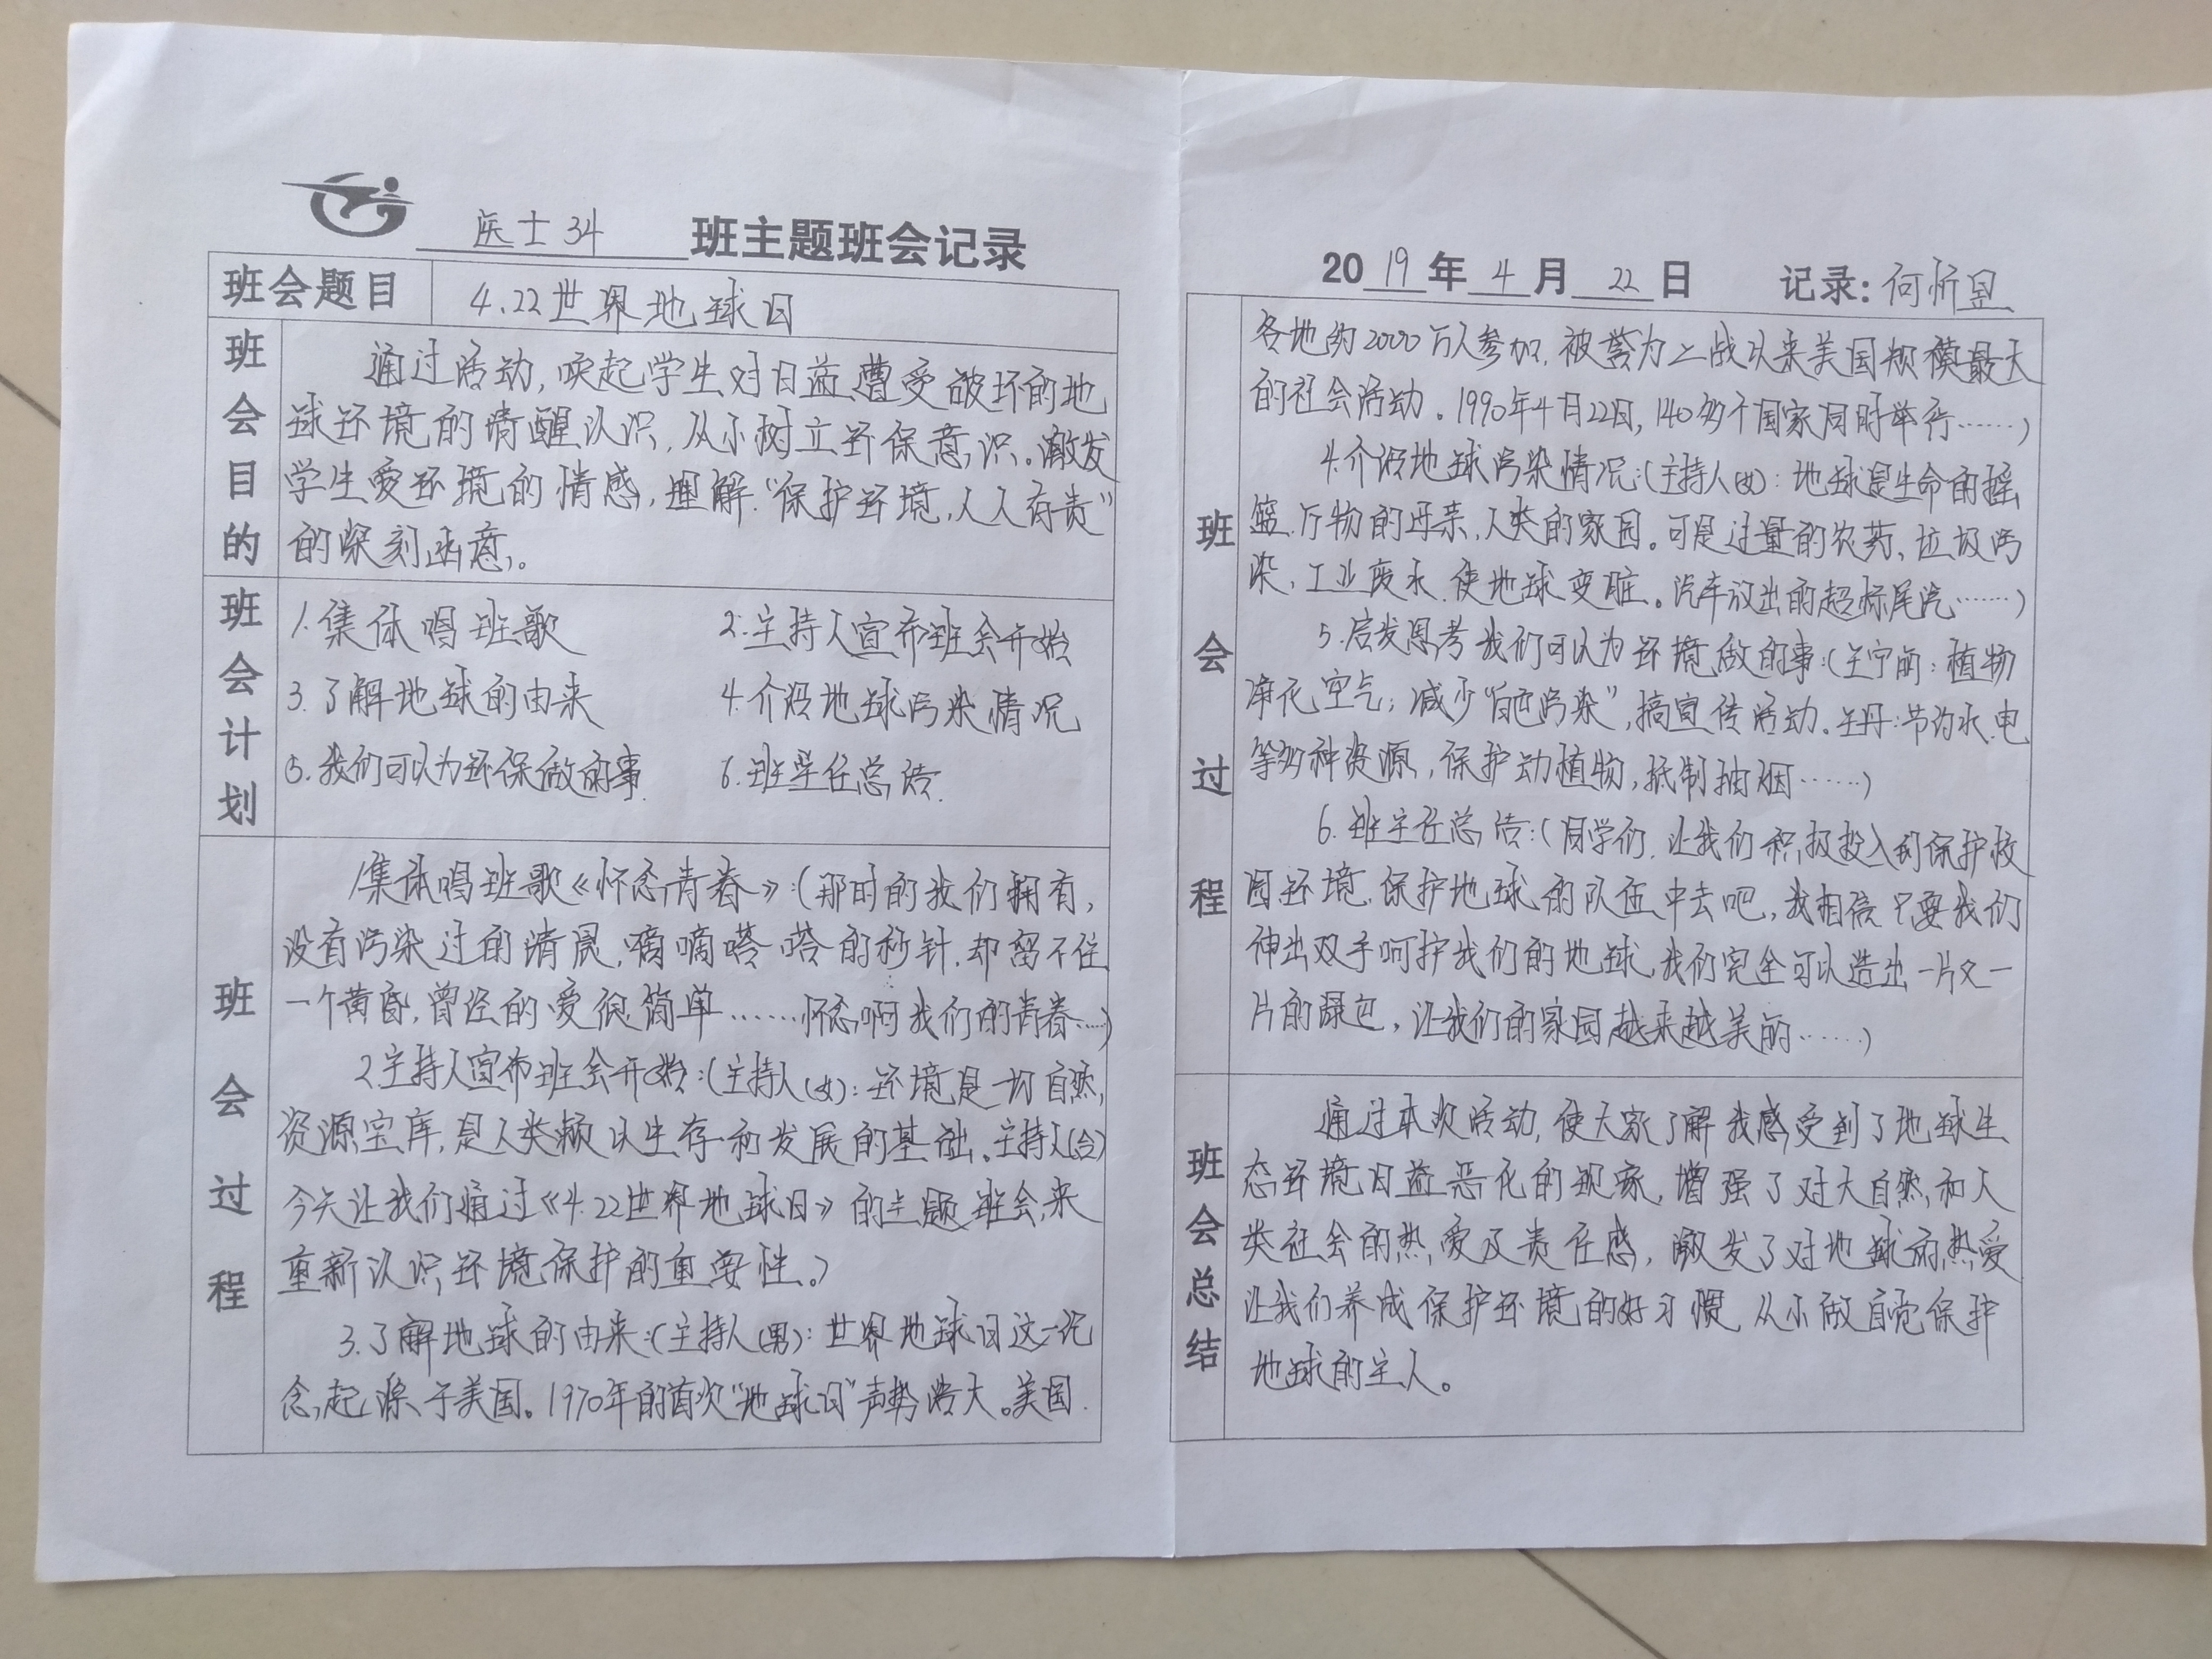 医士34 班主题班会记录
班会题目 4.22世界地球日
班会目的
通过活动,唤起学生对日益遭受破坏的地
球环境的清醒认识,从小树立环保意识。激发
学生爱环境的情感,理解“保护环境,人人有责”
的深刻函意。
班会计划
1.集体唱班歌 2.主持人宣布班会开始
3.了解地球的由来 4.介绍地球污染情况
5.我们可以为环保做的事. 6.班主任总结.
班会过程
1.集体唱班歌《怀念青春》:(那时的我们拥有,
没有污染过的清晨,嘀嘀嗒嗒的秒针,却留不住
一个黄昏,曾经的爱很简单……怀念啊我们的青春…)
2.主持人宣布班会开始:(主持人(女):环境是一切自然
资源宝库,是人类赖以生存和发展的基础。主持人(合)
今天让我们通过《4.22世界地球日》的主题班会,来
重新认识环境保护的重要性。)
3.了解地球的由来:(主持人(男):世界地球日这一纪
念起源于美国。1970年的首次“地球日”声势浩大。美国
2019年4月22日 记录:何忻昱
班会过程
各地约2000万人参加,被誉为二战以来美国规模最大
的社会活动。1990年4月22日,140多个国家同时举行……)
4.介绍地球污染情况:(主持人(女):地球是生命的摇
篮.万物的母亲,人类的家园。可是过量的农药、垃圾污
染,工业废水.使地球变脏。汽车放出的超标尾汽……)
5.启发思考我们可以为环境做的事:(王宁丽:植物
净化空气;减少“白色污染”,搞宣传活动.王丹:节约水.电
等多种资源,保护动植物,抵制抽烟……)
6.班主任总结:(同学们.让我们积极投入到保护校
园环境.保护地球的队伍中去吧,我相信只要我们
伸出双手呵护我们的地球,我们完全可以造出一片又一
片的绿色,让我们的家园越来越美丽……)
班会总结
通过本次活动,使大家了解我感受到了地球生
态环境日益恶化的现象,增强了对大自然和人
类社会的热爱及责任感,激发了对地球的热爱
让我们养成保护环境的好习惯,从小做自觉保护
地球的主人。